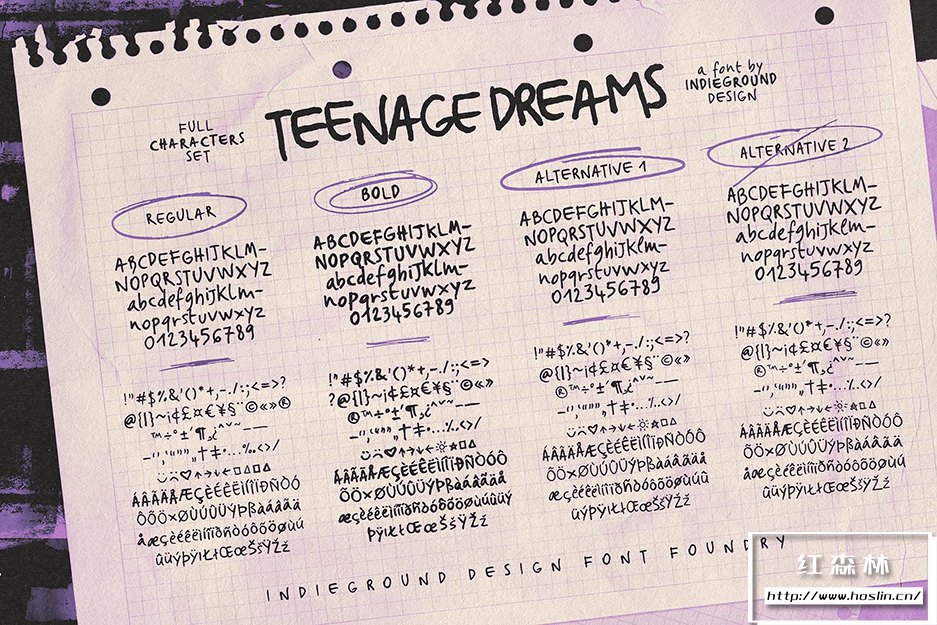 FULL
CHARACTERS
SET
TEENAGE DREAMS
a font by
INDIEGROUND
DESIGN
REGULAR
ABCDEFGHIJKLM-
NOPQRSTUVWXYZ
abcdefghijklm-
nopqrstuvwxyz
0123456789
!"#$%&'()*+,-./:;<=>?
@{|}~¡¢£¤€¥§¨©«»®
™÷°±´¶¸¿^ˇ~–—
ÁÂÃÄÅÆÇÈÉÊËÌÍÎÏÐÑÒÓ
ÔÕÖ×ØÙÚÛÜÝÞßàáâãä
åæçèéêëìíîïðñòóôõöøùú
ûüýþÿıŁłŒœŠšŸŽž
BOLD
ABCDEFGHIJKLM-
NOPQRSTUVWXYZ
abcdefghijklm-
nopqrstuvwxyz
0123456789
!"#$%&'()*+,-./:;<=>
?@{|}~¡¢£¤€¥§¨©«»
®™÷°±´¶¸¿^ˇ~–—
ÁÂÃÄÅÆÇÈÉÊËÌÍÎÏÐÑÒÓÔ
ÕÖ×ØÙÚÛÜÝÞßàáâãäå
æçèéêëìíîïðñòóôõöøùúûüý
þÿıŁłŒœŠšŸŽž
ALTERNATIVE 1
ABCDEFGHIJKLM-
NOPQRSTUVWXYZ
abcdefghijklm-
nopqrstuvwxyz
0123456789
!"#$%&'()*+,-./:;<=>?
@{|}~¡¢£¤€¥§¨©«»
®™÷°±´¶¸¿^ˇ~–—
ÁÂÃÄÅÆÇÈÉÊËÌÍÎÏÐÑÒÓÔ
ÕÖ×ØÙÚÛÜÝÞßàáâãäå
æçèéêëìíîïðñòóôõöøùú
ûüýþÿıŁłŒœŠšŸŽž
ALTERNATIVE 2
ABCDEFGHIJKLM-
NOPQRSTUVWXYZ
abcdefghijklm-
nopqrstuvwxyz
0123456789
!"#$%&'()*+,-./:;<=>?
@{|}~¡¢£¤€¥§¨©«»
®™÷°±´¶¸¿^ˇ~–—
ÁÂÃÄÅÆÇÈÉÊËÌÍÎÏÐÑÒÓÔ
ÕÖ×ØÙÚÛÜÝÞßàáâãä
åæçèéêëìíîïðñòóôõöøùú
ûüýþÿıŁłŒœŠšŸŽž
INDIEGROUND DESIGN FONT FOUNDRY
红森林
http://www.hoslin.cn/